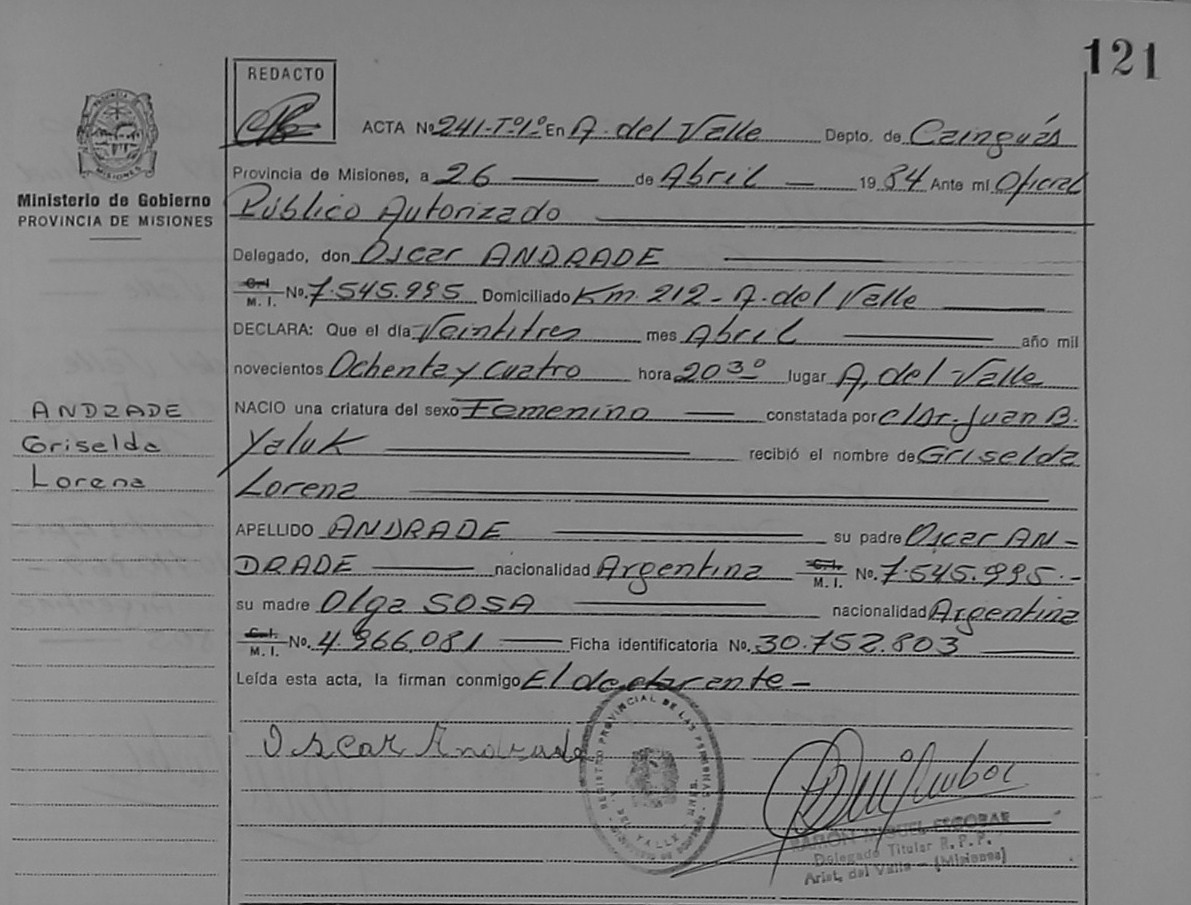 121
REDACTO
ACTA Nº 241-Tº1º En A. del Valle Depto. de Cainguás
Provincia de Misiones, a 26 de Abril 1984 Ante mí Oficial
Público Autorizado
Delegado, don Oscar ANDRADE
C.I. M. I. No. 7.545.995 Domiciliado Km. 212 - A. del Valle
DECLARA: Que el día Veintitres mes Abril año mil
novecientos Ochenta y Cuatro hora 20 30 lugar A. del Valle
NACIO una criatura del sexo Femenino constatada por el Dr. Juan B.
Yaluk recibió el nombre de Griselda
Lorena
APELLIDO ANDRADE su padre Oscar AN-
DRADE nacionalidad Argentina C.I. M. I. No. 7.545.995.-
su madre Olga SOSA nacionalidad Argentina
C.I. M. I. No. 4.966.081 Ficha identificatoria No. 30.752.803
Leída esta acta, la firman conmigo El declarante -
Oscar Andrade
Ministerio de Gobierno
PROVINCIA DE MISIONES
ANDRADE
Griselda
Lorena
PROVINCIA
MISIONES
REGISTRO PROVINCIAL DE LAS PERSONAS
A. DEL VALLE
RAMON MIGUEL ESCOBAR
Delegado Titular R. P. P.
Arist. del Valle - (Misiones)